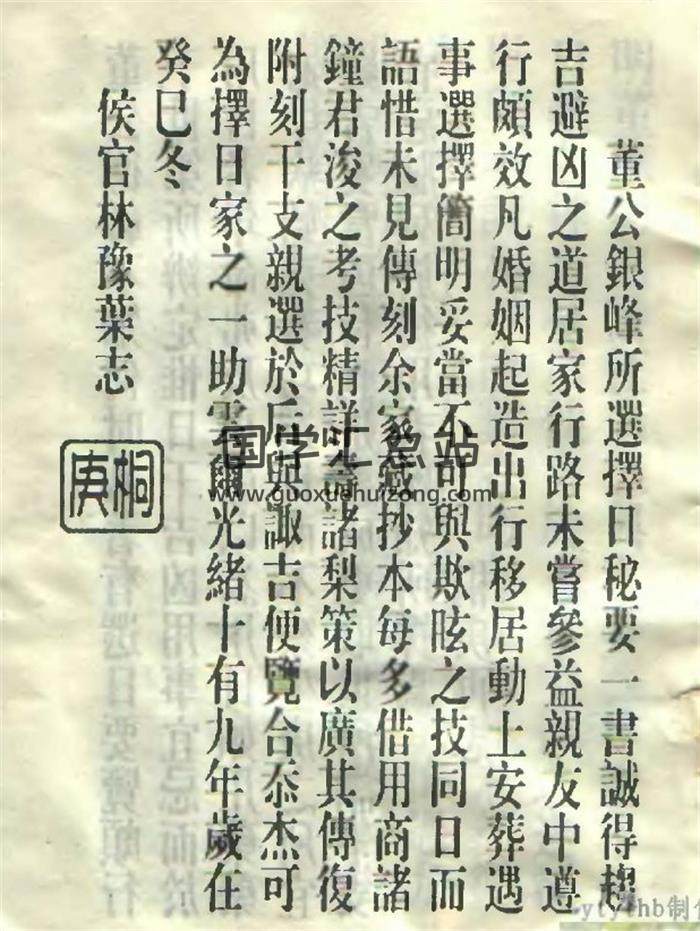 董公銀峰所選擇日秘要一書誠得趨
吉避凶之道居家行路未嘗參益親友中遵
行頗效凡婚姻起造出行移居動土安葬遇
事選擇簡明妥當不可與欺眩之技同日而
語惜未見傳刻余家藏抄本每多借用商諸
鐘君浚之考技精詳壽諸梨策以廣其傳復
附刻干支親選於后與諏吉便覽合忝杰可
為擇日家之一助云爾光緒十有九年歲在
癸巳冬
侯官林豫葉志
桐庚
国学汇总站
www.guoxuehuizong.com